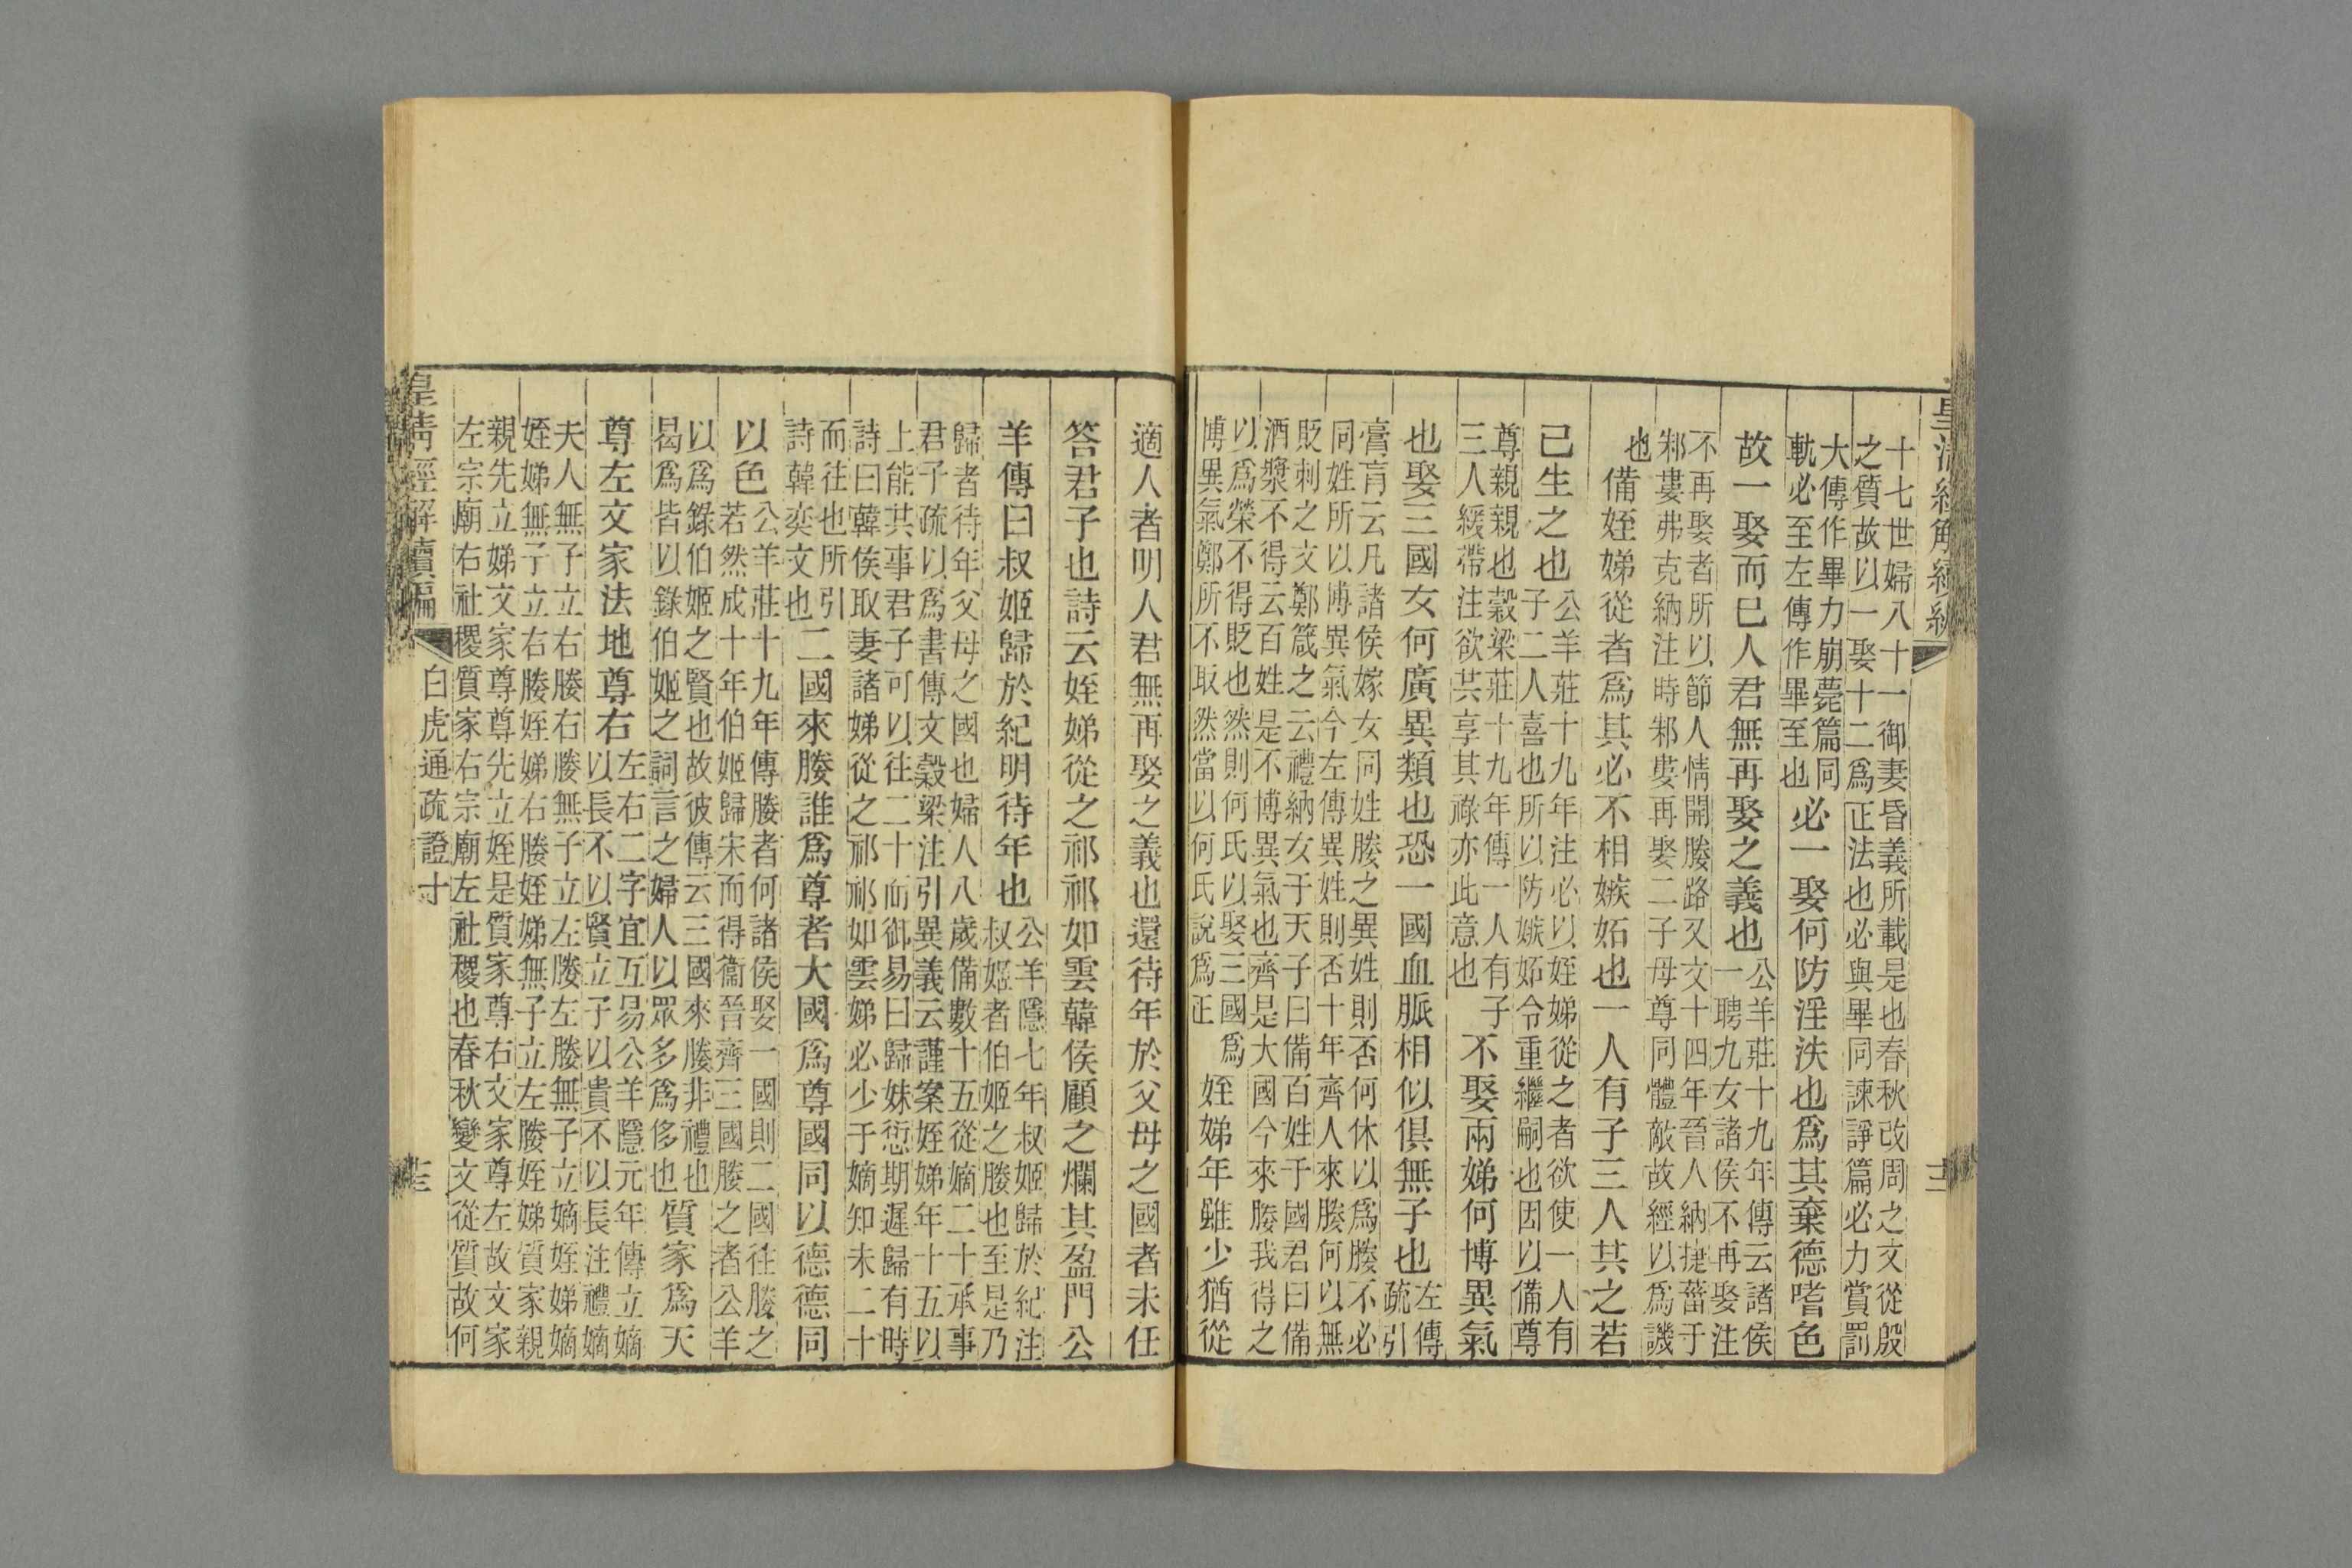 十七世婦八十一御妻昏義所載是也春秋改周之文從殷
之質故以一娶十二爲正法也必與畢同諫諍篇必力賞罰
大傳作畢力崩薨篇同
軌必至左傳作畢至也
必一娶何防淫泆也爲其棄德嗜色
故一娶而已人君無再娶之義也
公羊莊十九年傳云諸侯
一聘九女諸侯不再娶注
不再娶者所以節人情開媵路又文十四年晉人納捷菑于
邾婁弗克納注時邾婁再娶二子母尊同體敵故經以爲譏
也
備姪娣從者爲其必不相嫉妬也一人有子三人共之若
己生之也
公羊莊十九年注必以姪娣從之者欲使一人有
子二人喜也所以防嫉妬令重繼嗣也因以備尊
尊親親也穀梁莊十九年傳一人有子
三人緩帶注欲共享其祿亦此意也
不娶兩娣何博異氣
也娶三國女何廣異類也恐一國血脈相似俱無子也
左傳
疏引
膏肓云凡諸侯嫁女同姓媵之異姓則否何休以爲媵不必
同姓所以博異氣今左傳異姓則否十年齊人來媵何以無
貶刺之文鄭箴之云禮納女于天子曰備百姓于國君曰備
酒漿不得云百姓是不博異氣也齊是大國今來媵我得之
以爲榮不得貶也然則何氏以娶三國爲
博異氣鄭所不取然當以何氏說爲正
姪娣年雖少猶從
適人者明人君無再娶之義也還待年於父母之國者未任
答君子也詩云姪娣從之祁祁如雲韓侯顧之爛其盈門公
羊傳曰叔姬歸於紀明待年也
公羊隱七年叔姬歸於紀注
叔姬者伯姬之媵也至是乃
歸者待年父母之國也婦人八歲備數十五從嫡二十承事
君子疏以爲書傳文穀梁注引異義云謹案姪娣年十五以
上能共事君子可以往二十而御易曰歸妹愆期遲歸有時
詩曰韓侯取妻諸娣從之祁祁如雲娣必少于嫡知未二十
而往也所引
詩韓奕文也
二國來媵誰爲尊者大國爲尊國同以德德同
以色
公羊莊十九年傳媵者何諸侯娶一國則二國往媵之
若然成十年伯姬歸宋而得衞晉齊三國媵之者公羊
以爲錄伯姬之賢也故彼傳云三國來媵非禮也
曷爲皆以錄伯姬之詞言之婦人以眾多爲侈也
質家爲天
尊左文家法地尊右
左右二字宜互易公羊隱元年傳立嫡
以長不以賢立子以貴不以長注禮嫡
夫人無子立右媵右媵無子立左媵左媵無子立嫡姪娣嫡
姪娣無子立右媵姪娣右媵姪娣無子立左媵姪娣質家親
親先立娣文家尊尊先立姪是質家尊右文家尊左故文家
左宗廟右社稷質家右宗廟左社稷也春秋變文從質故何
皇清經解續編
白虎通疏證十